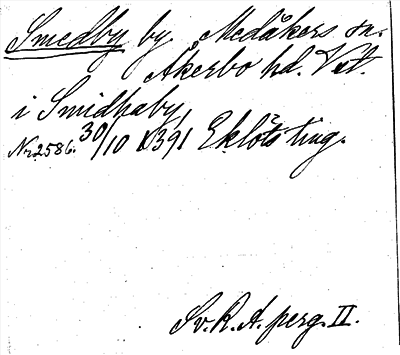 Smedby by, Medåkers sn.
Åkerbo hd. Vstm.
i Smidhaby,
Nr 2586. 30/10 1391 Eklöts ting.
Sv. R. A. perg. II.